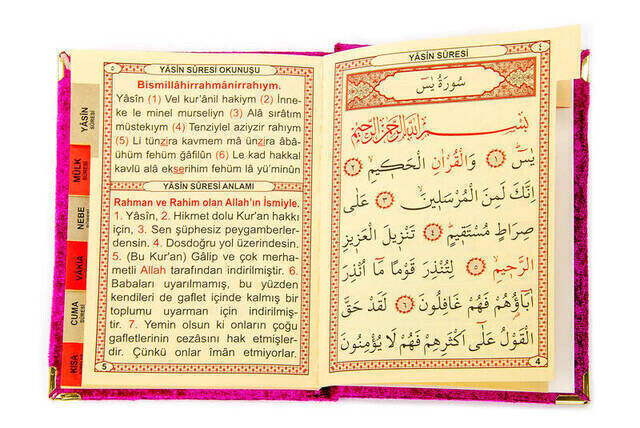 YÂSÎN SÛRESİ
٤
سُورَةُ يٰسٓ
بِسْمِ اللهِ الرَّحْمٰنِ الرَّحِيمِ
يٰسٓ ﴿١﴾ وَالْقُرْاٰنِ الْحَكِيمِ ﴿٢﴾
اِنَّكَ لَمِنَ الْمُرْسَلِينَ ﴿٣﴾ عَلٰى
صِرَاطٍ مُسْتَقِيمٍ ﴿٤﴾ تَنْزِيلَ الْعَزِيزِ
الرَّحِيمِ ﴿٥﴾ لِتُنْذِرَ قَوْمًا مَٓا اُنْذِرَ
اٰبَٓاؤُهُمْ فَهُمْ غَافِلُونَ ﴿٦﴾ لَقَدْ حَقَّ
الْقَوْلُ عَلٰٓى اَكْثَرِهِمْ فَهُمْ لَا يُؤْمِنُونَ
4
٥
YÂSÎN SÛRESİ OKUNUŞU
Bismillâhirrahmânirrahıym.
Yâsîn (1) Vel kur'ânil hakiym (2) İnne-
ke le minel murseliyn (3) Alâ sırâtım
müstekıym (4) Tenziylel aziyzir rahıym
(5) Li tünzira kavmem mâ ünzira âbâ-
ühüm fehüm ğâfilûn (6) Le kad hakkal
kavlü alâ ekserihim fehüm lâ yü'minûn
YÂSÎN SÛRESİ ANLAMI
Rahman ve Rahim olan Allah'ın İsmiyle.
1. Yâsîn, 2. Hikmet dolu Kur'an hakkı
için, 3. Sen şüphesiz peygamberler-
densin. 4. Dosdoğru yol üzerindesin.
5. (Bu Kur'an) Gâlip ve çok merha-
metli Allah tarafından indirilmiştir. 6.
Babaları uyarılmamış, bu yüzden
kendileri de gaflet içinde kalmış bir
toplumu uyarman için indirilmiş-
tir. 7. Yemin olsun ki onların çoğu
gafletlerinin cezasını hak etmişler-
dir. Çünkü onlar îmân etmiyorlar.
5
YÂSÎN
SÛRESİ
MÜLK
SÛRESİ
NEBE
SÛRESİ
VÂKIA
CUMA
SÛRESİ
KISA